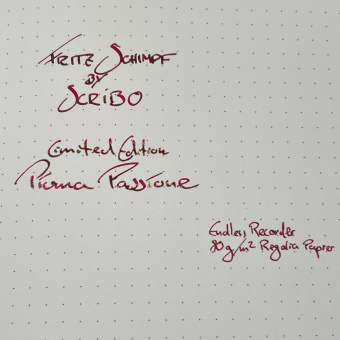 Fritz Schimpf
by
Scribo
Limited Edition
Piuma Passione
Endless Recorder
80 g/m² Regalia Papier